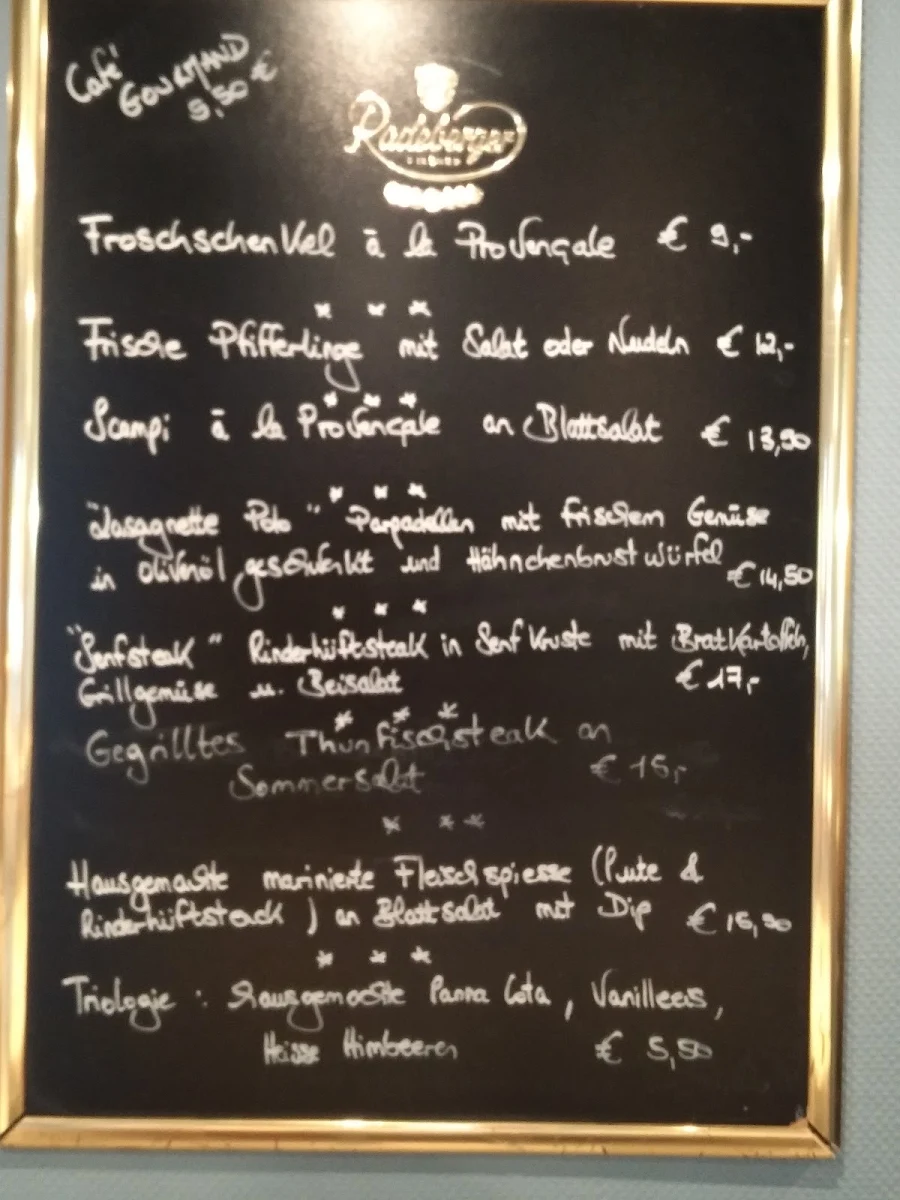 Café
GOURMAND
5,50 €
Radeberger
PILSNER
Froschschenkel à la Provençale € 9,-
* * *
Frische Pfifferlinge mit Salat oder Nudeln € 12,-
* * *
Scampi à la Provençale an Blattsalat € 13,90
* * *
"Lasagnette Poto" Parpadellen mit frischem Gemüse
in Olivenöl geschwenkt und Hähnchenbrustwürfel € 14,50
* * *
"Senfsteak" Rinderhüftsteak in Senfkruste mit Bratkartoffeln,
Grillgemüse u. Beisalat € 17,-
* * *
Gegrilltes Thunfischsteak an
Sommersalat € 16,-
* * *
Hausgemachte marinierte Fleischspiesse (Pute &
Rinderhüftsteack) an Blattsalat mit Dip € 16,90
* * *
Triologie : Hausgemachte Panna Cota, Vanilleeis,
Heisse Himbeeren € 5,50